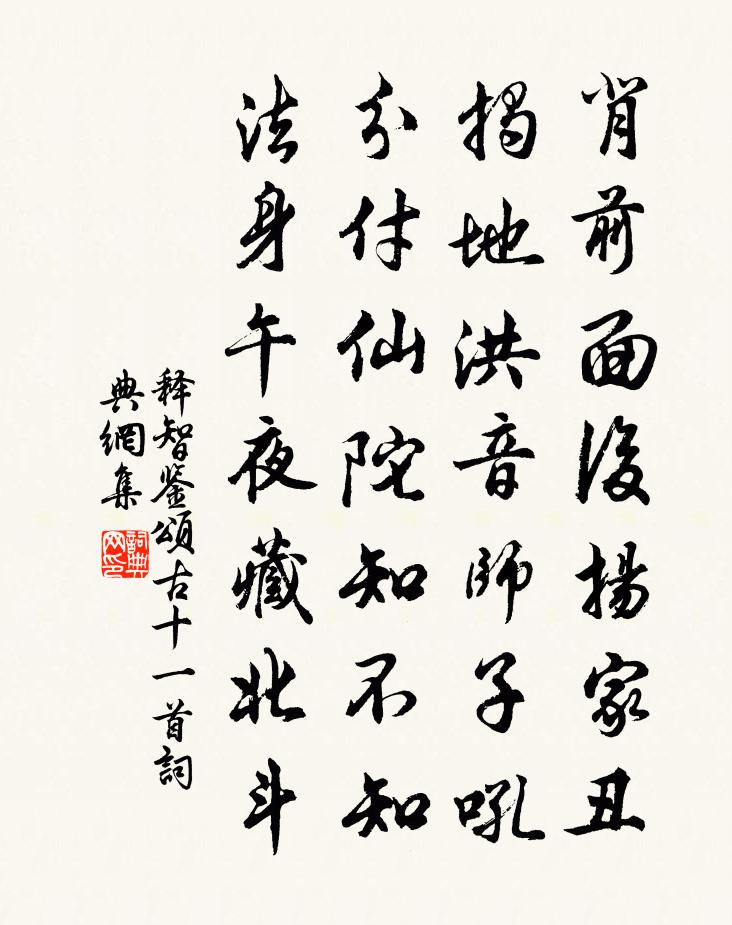 背前面後揚家丑
揭地洪音師子吼
分付仙陀知不知
法身午夜藏北斗
释智鉴頌古十一首詞
典網集
詞典
网印